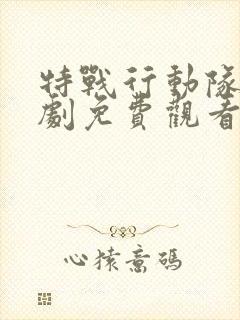 特戰行動隊
劇免費觀看
心猿意碼